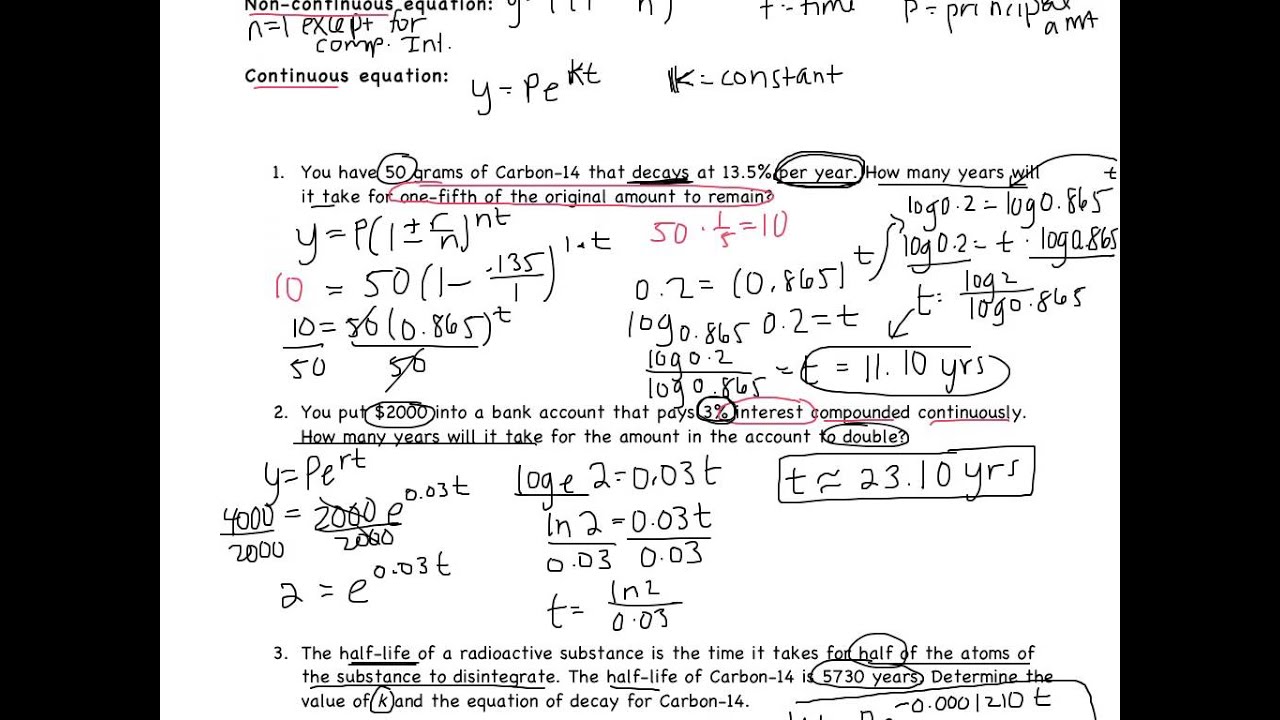 Non-continuous equation:
n=1 except for
comp. Int.
t = time
P = principal
amt
Continuous equation: y = Pe^kt K = constant
1. You have 50 grams of Carbon-14 that decays at 13.5% per year. How many years will
it take for one-fifth of the original amount to remain?
y = P(1 ± r/n)^nt
10 = 50(1 - .135/1)^1·t
10/50 = 50(0.865)^t/50
50 · 1/5 = 10
0.2 = (0.865)^t
log0.865 0.2 = t
log0.2/log0.865 = t = 11.10 yrs
log0.2 = log0.865^t
log0.2 = t · log0.865
t = log2/log0.865
2. You put $2000 into a bank account that pays 3% interest compounded continuously.
How many years will it take for the amount in the account to double?
y = Pe^rt
4000/2000 = 2000e^0.03t/2000
2 = e^0.03t
loge 2 = 0.03t
ln 2/0.03 = 0.03t/0.03
t = ln2/0.03
t ≈ 23.10 yrs
3. The half-life of a radioactive substance is the time it takes for half of the atoms of
the substance to disintegrate. The half-life of Carbon-14 is 5730 years. Determine the
value of k and the equation of decay for Carbon-14.
-0.0001210 t